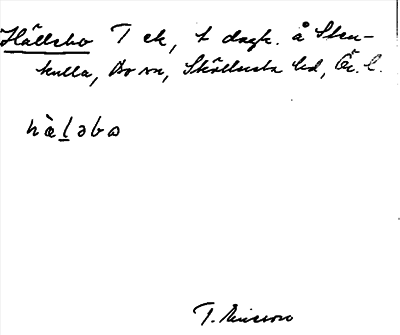 Hällebo T ek, t dagk. å Sten-
kulla, Bo sn, Sköllersta hd, Ör. l.
hä̀l̲əbo
T. Ericsson